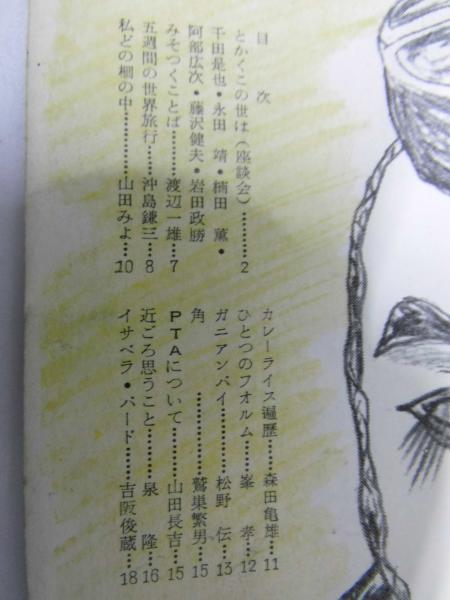 目次
とかくこの世は(座談会)…………2
千田是也・永田靖・楠田薫・
阿部広次・藤沢健夫・岩田政勝
みそつくことば………渡辺一雄…7
五週間の世界旅行……沖島鎌三…8
私どの棚の中…………山田みよ…10
カレーライス遍歴………森田亀雄…11
ひとつのフオルム………峯孝…12
ガニアンパイ……………松野伝…13
角…………………鷲巣繁男…15
PTAについて…………山田長吉…15
近ごろ思うこと…………泉隆…16
イサベラ・バード………吉阪俊蔵…18